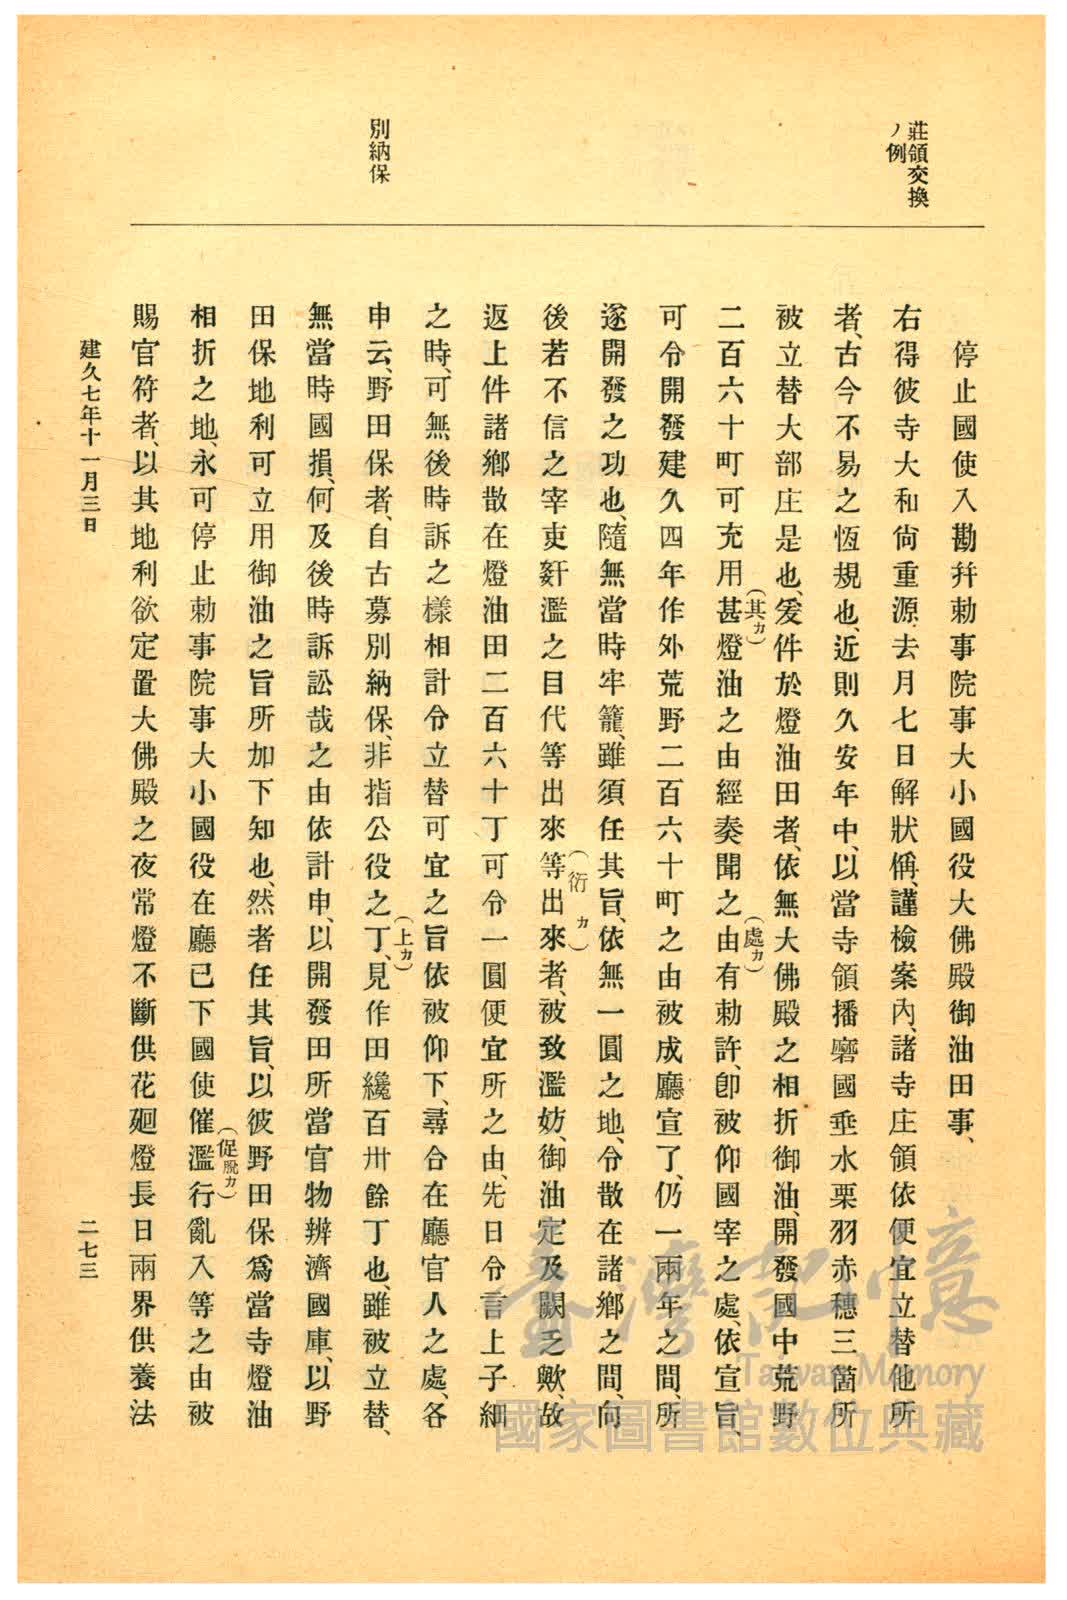 莊領交換
ノ例
別納保
停止國使入勘幷勅事院事大小國役大佛殿御油田事、
右得彼寺大和尙重源去月七日解狀偁、謹檢案內、諸寺庄領依便宜立替他所
者、古今不易之恆規也、近則久安年中、以當寺領播磨國垂水栗羽赤穗三箇所
被立替大部庄是也、爰件於燈油田者、依無大佛殿之相折御油、開發國中荒野
二百六十町可充用甚(其カ)燈油之由經奏聞之由(處カ)有勅許、卽被仰國宰之處、依宣旨、
可令開發建久四年作外荒野二百六十町之由被成廳宣了、仍一兩年之間、所
遂開發之功也、隨無當時牢籠、雖須任其旨、依無一圓之地、令散在諸鄕之間、向
後若不信之宰吏姧濫之目代等出來等出來(衍カ)者、被致濫妨、御油定及闕乏歟、故
返上件諸鄕散在燈油田二百六十丁可令一圓便宜所之由、先日令言上子細
之時、可無後時訴之樣相計令立替可宜之旨依被仰下、尋合在廳官人之處、各
申云、野田保者、自古募別納保、非指公役之丁(上カ)、見作田纔百卅餘丁也、雖被立替、
無當時國損、何及後時訴訟哉之由依計申、以開發田所當官物辨濟國庫、以野
田保地利可立用御油之旨所加下知也、然者任其旨、以彼野田保爲當寺燈油
相折之地、永可停止勅事院事大小國役在廳已下國使催(促脫カ)濫行亂入等之由被
賜官符者、以其地利欲定置大佛殿之夜常燈不斷供花廻燈長日兩界供養法
建久七年十一月三日
二七三
臺灣記憶
Taiwan Memory
國家圖書館數位典藏